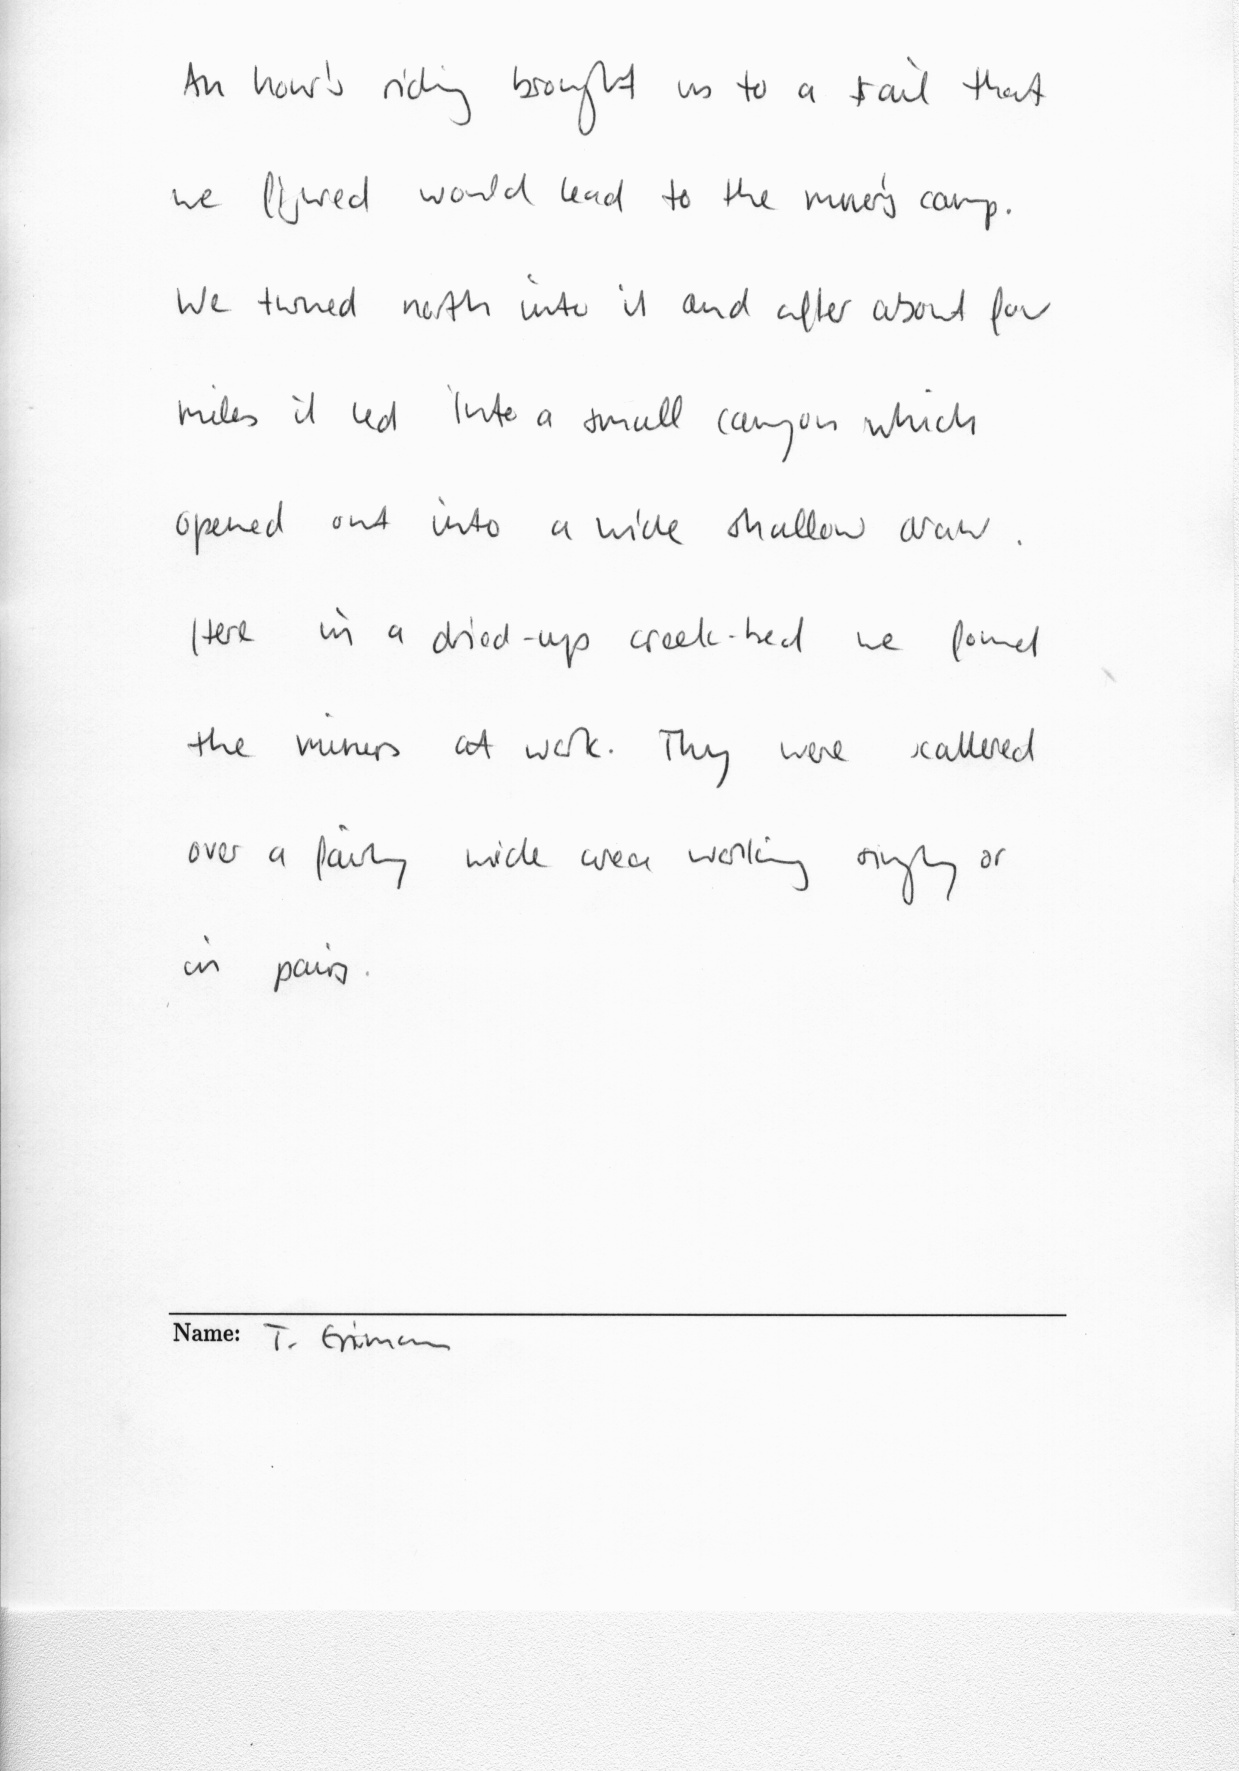 An hour's riding brought us to a trail that
we figured would lead to the miner's camp.
We turned north into it and after about four
miles it led into a small canyon which
opened out into a wide shallow draw.
Here in a dried-up creek-bed we found
the miners at work. They were scattered
over a fairly wide area working singly or
in pairs.
Name: T.